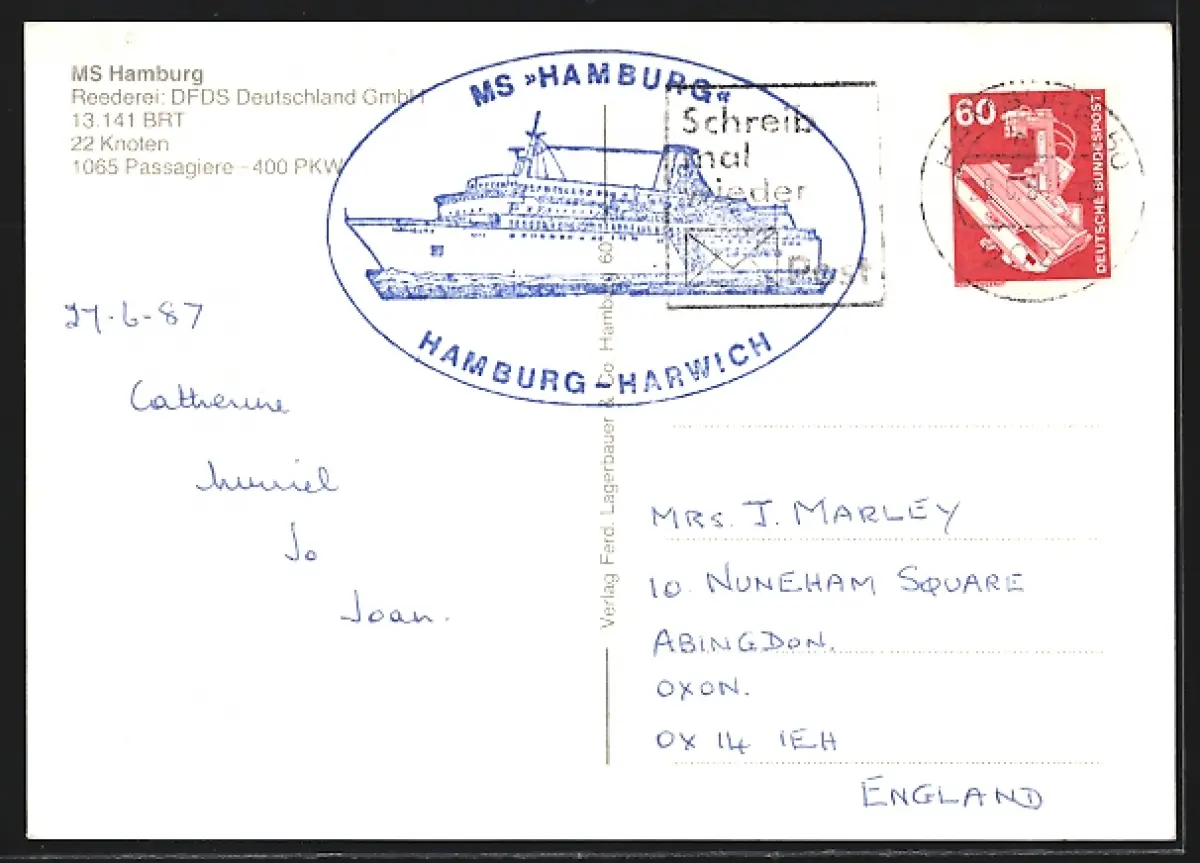 MS Hamburg
Reederei: DFDS Deutschland GmbH
13.141 BRT
22 Knoten
1065 Passagiere - 400 PKW
MS »HAMBURG«
HAMBURG - HARWICH
Schreib
mal
wieder
Post
60
DEUTSCHE BUNDESPOST
27-6-87
Catherine
Muriel
Jo
Joan.
Verlag Ferd. Lagerbauer & Co Hamburg 60
MRS. J. MARLEY
10 NUNEHAM SQUARE
ABINGDON.
OXON.
OX 14 1EH
ENGLAND